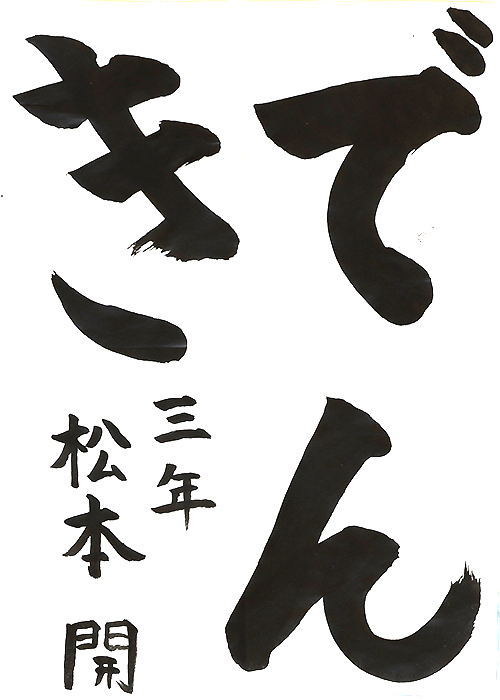 でん
き
三年
松本 開